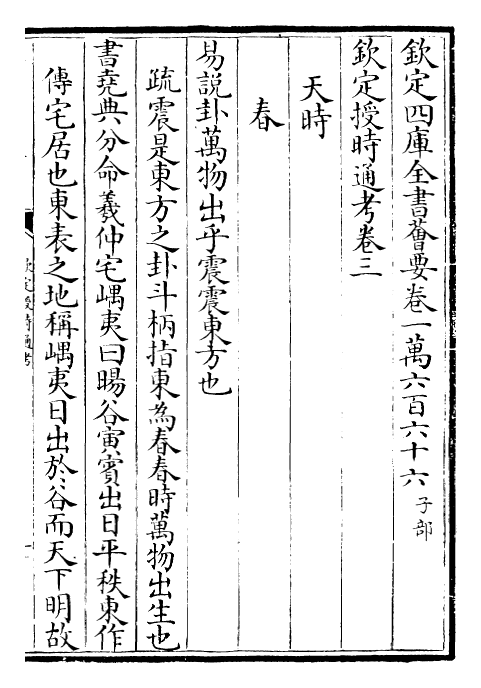 欽定四庫全書薈要卷一萬六百六十六子部
欽定授時通考卷三
天時
春
易說卦萬物出乎震震東方也
疏震是東方之卦斗柄指東為春春時萬物出生也
書堯典分命羲仲宅嵎夷曰暘谷寅賓出日平秩東作
傳宅居也東表之地稱嵎夷日出於谷而天下明故
欽定授時通考